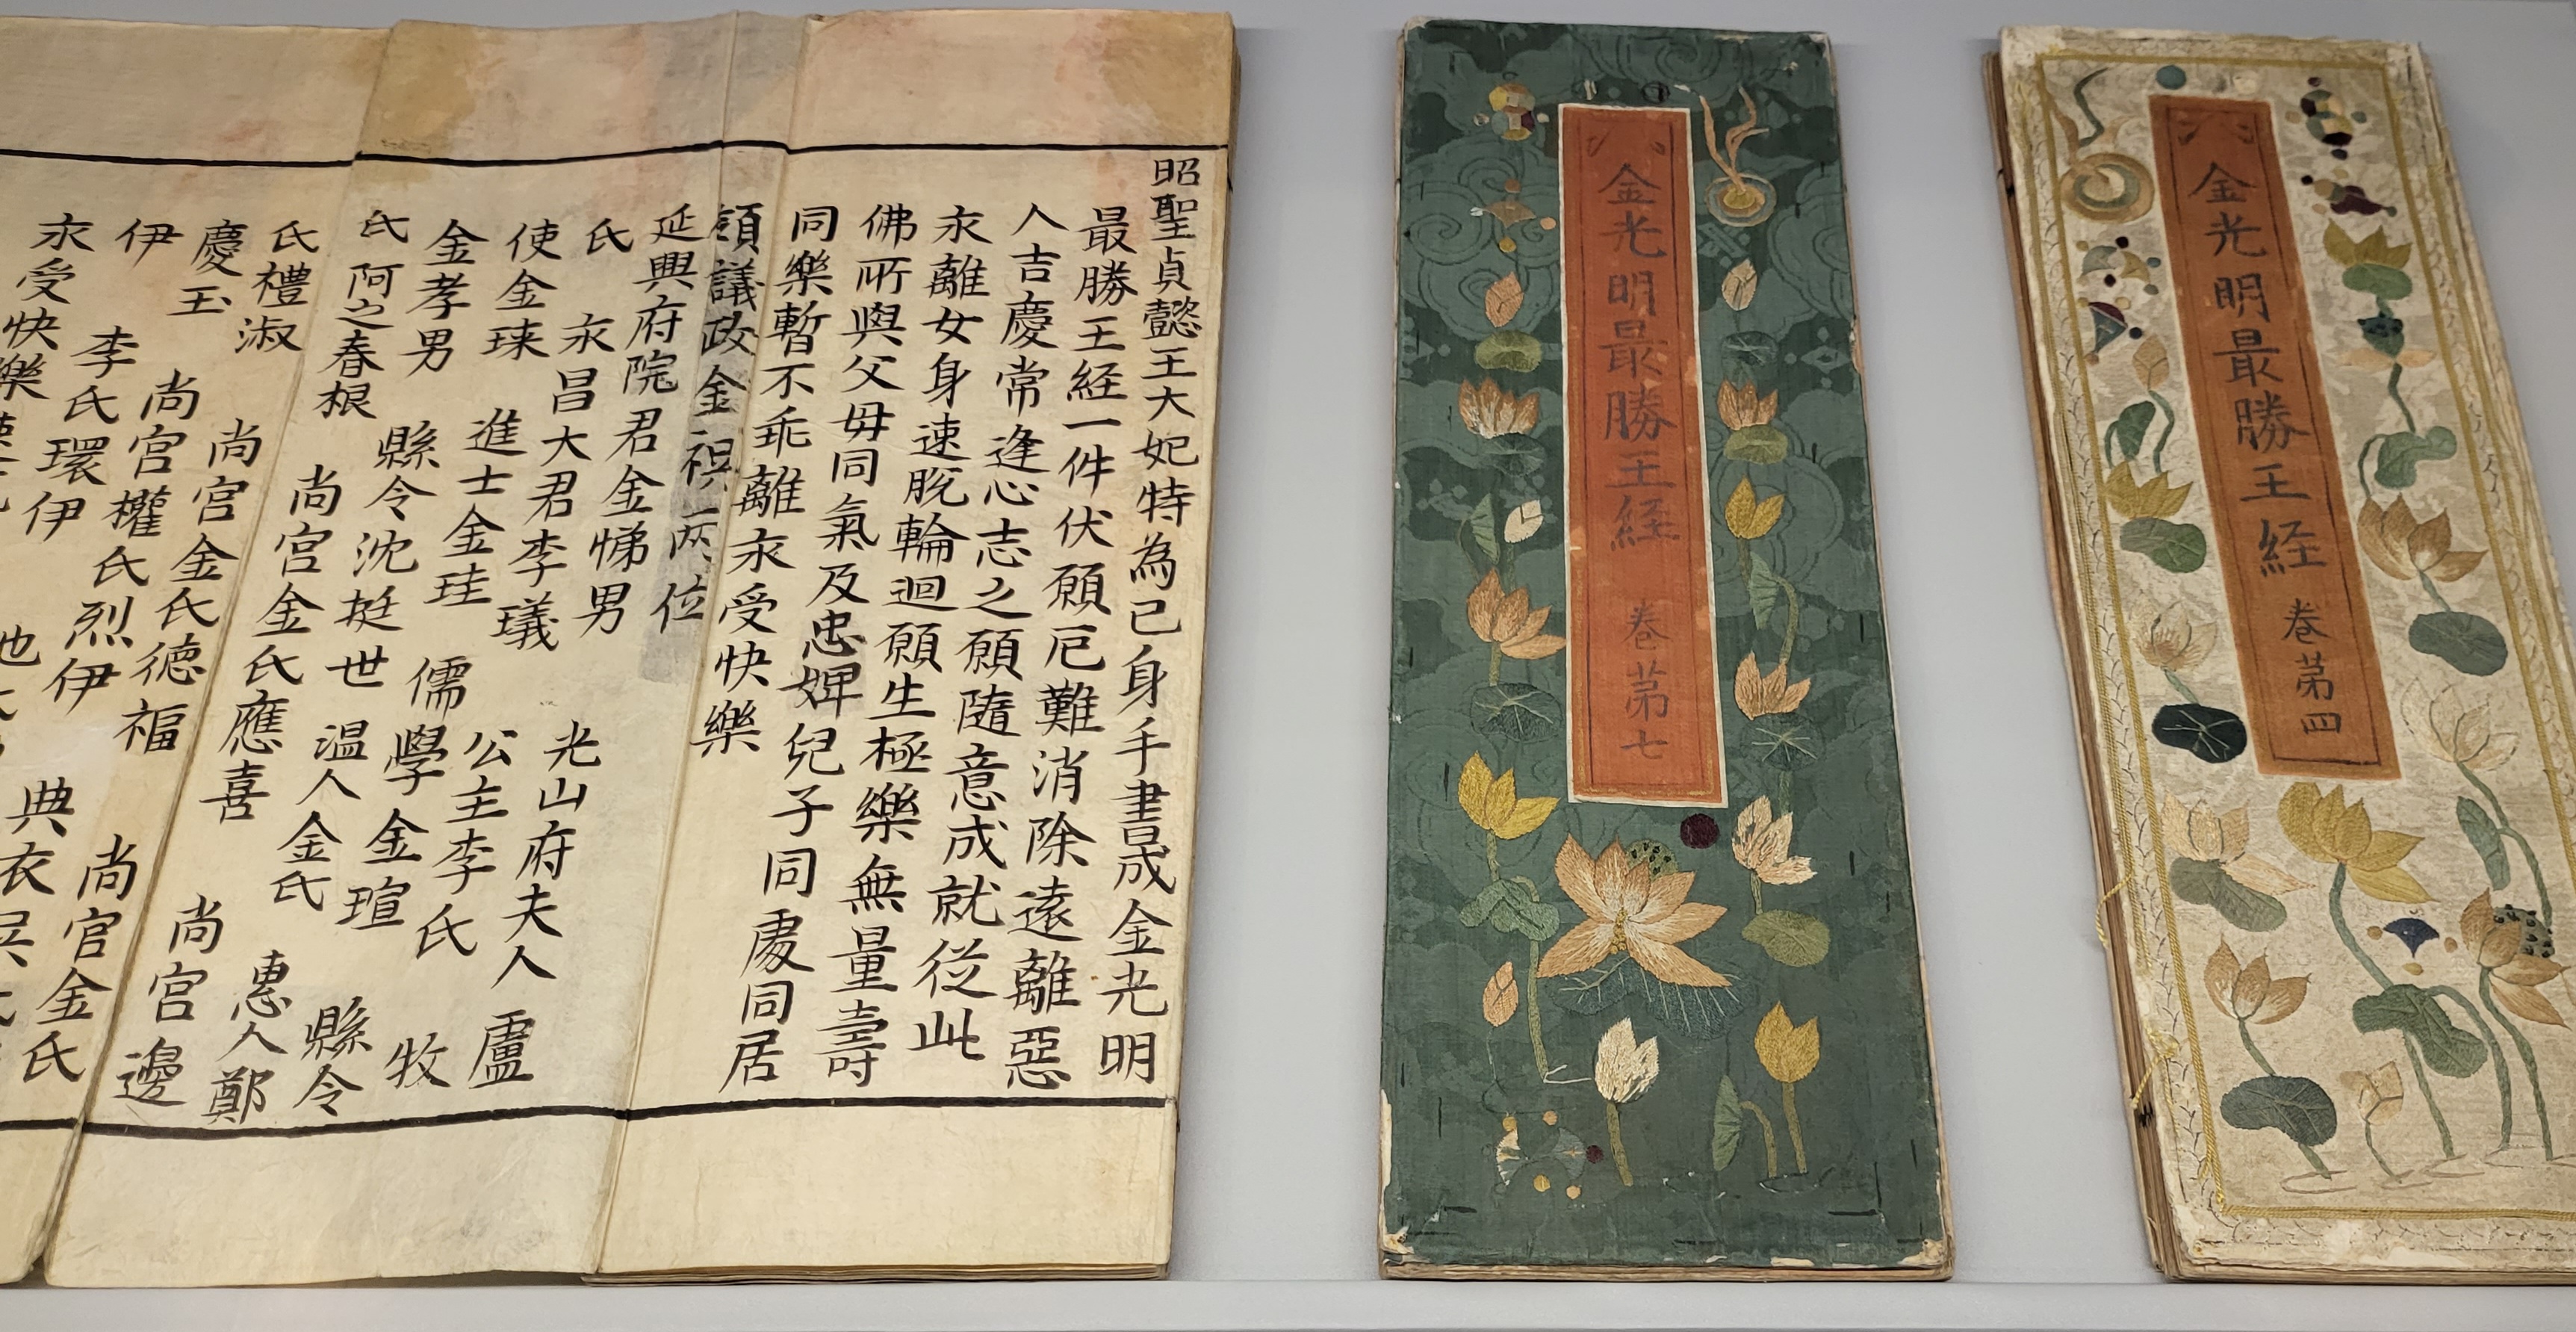 昭聖貞懿王大妃特為己身手書成金光明
最勝王経一件伏願厄難消除遠離惡
人吉慶常逢心志之願隨意成就從此
永離女身速脫輪迴願生極樂無量壽
佛所與父母同氣及忠婢兒子同處同居
同樂暫不乖離永受快樂
領議政金兩位
延興府院君金悌男 光山府夫人盧
氏 永昌大君李㼁 公主李氏 牧
使金琜 進士金珪 儒學金瑄
金孝男 縣令沈挺世 温人金氏 縣令
氏阿之春根 尚宮金氏應喜 惠人鄭
氏禮淑 尚宮金氏德福 尚宮邊
慶玉 尚宮權氏烈伊 尚宮金氏
伊 李氏環伊 典衣
永受快樂
金光明最勝王経 卷第七
金光明最勝王経 卷第四